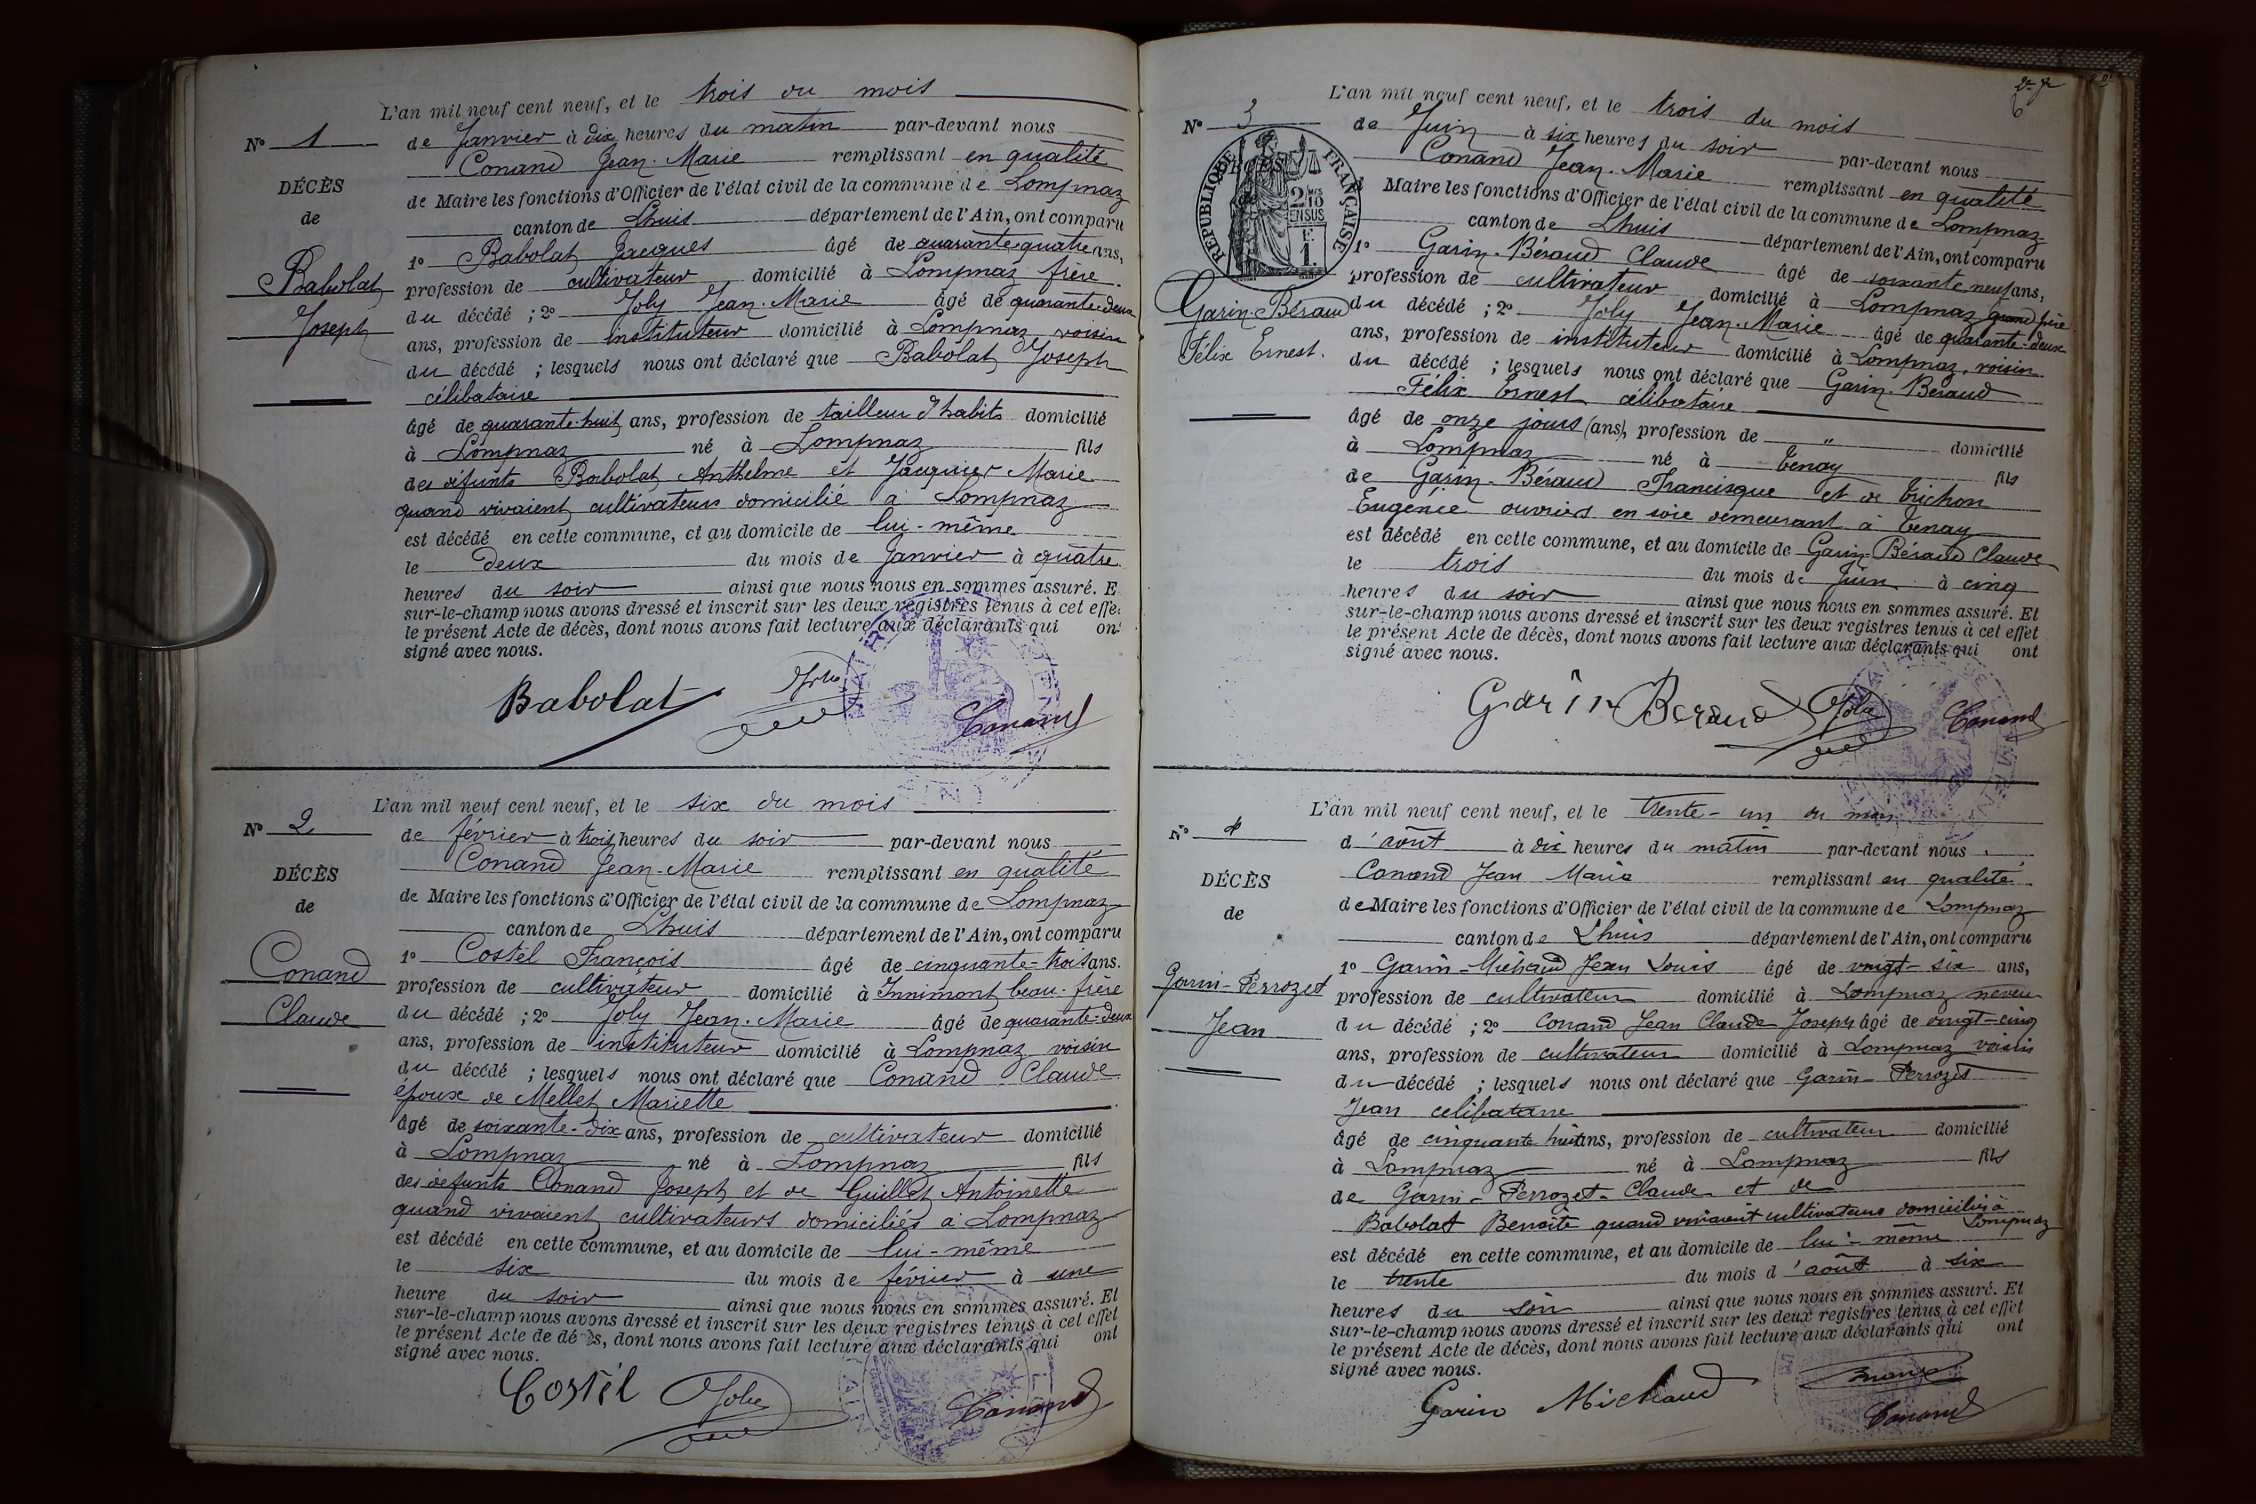 L'an mil neuf cent neuf, et le trois du mois
N° 1 de Janvier à dix heures du matin par-devant nous
Conand Jean-Marie remplissant en qualité
DÉCÈS de Maire les fonctions d'Officier de l'état civil de la commune de Lompnaz
de canton de Lhuis département de l'Ain, ont comparu
1° Babolat Jacques âgé de quarante-quatre ans,
Babolat profession de cultivateur domicilié à Lompnaz frère
Joseph du décédé ; 2° Joly Jean-Marie âgé de quarante-deux
ans, profession de instituteur domicilié à Lompnaz voisin
du décédé ; lesquels nous ont déclaré que Babolat Joseph
célibataire
âgé de quarante-huit ans, profession de tailleur d'habits domicilié
à Lompnaz né à Lompnaz fils
des défunts Babolat Anthelme et Jacquier Marie
quand vivaient cultivateurs domicilié à Lompnaz
est décédé en cette commune, et au domicile de lui-même
le deux du mois de Janvier à quatre
heures du soir ainsi que nous nous en sommes assuré. E
sur-le-champ nous avons dressé et inscrit sur les deux registres tenus à cet effe
le présent Acte de décès, dont nous avons fait lecture aux déclarants qui on
signé avec nous.
Babolat Joly Conand
L'an mil neuf cent neuf, et le six du mois
N° 2 de février à trois heures du soir par-devant nous
Conand Jean-Marie remplissant en qualité
DÉCÈS de Maire les fonctions d'Officier de l'état civil de la commune de Lompnaz
de canton de Lhuis département de l'Ain, ont comparu
1° Costel François âgé de cinquante-trois ans.
Conand profession de cultivateur domicilié à Innimont beau-frère
Claude du décédé ; 2° Joly Jean-Marie âgé de quarante-deux
ans, profession de instituteur domicilié à Lompnaz voisin
du décédé ; lesquels nous ont déclaré que Conand Claude
époux de Mellet Mariette
âgé de soixante-dix ans, profession de cultivateur domicilié
à Lompnaz né à Lompnaz fils
des défunts Conand Joseph et de Guillet Antoinette
quand vivaient cultivateurs domiciliés à Lompnaz
est décédé en cette commune, et au domicile de lui-même
le six du mois de février à une
heure du soir ainsi que nous nous en sommes assuré. Et
sur-le-champ nous avons dressé et inscrit sur les deux registres tenus à cet effet
le présent Acte de décès, dont nous avons fait lecture aux déclarants qui ont
signé avec nous.
Costel Joly Conand
L'an mil neuf cent neuf, et le trois du mois
N° 3 de Juin à six heures du soir par-devant nous
Conand Jean-Marie remplissant en qualité
RÉPUBLIQUE FRANÇAISE
2/10 EN SUS
1.
Maire les fonctions d'Officier de l'état civil de la commune de Lompnaz
canton de Lhuis département de l'Ain, ont comparu
1° Garin-Béraud Claude âgé de soixante-neuf ans,
profession de cultivateur domicilié à Lompnaz grand père
Garin-Béraud du décédé ; 2° Joly Jean-Marie âgé de quarante-deux
Félix Ernest. ans, profession de instituteur domicilié à Lompnaz, voisin
du décédé ; lesquels nous ont déclaré que Garin-Béraud
Félix Ernest célibataire
âgé de onze jours (ans), profession de " domicilié
à Lompnaz né à Tenay fils
de Garin-Béraud Francisque et de Trichon
Eugénie ouvriers en soie demeurant à Tenay
est décédé en cette commune, et au domicile de Garin-Béraud Claude
le trois du mois de Juin à cinq
heures du soir ainsi que nous nous en sommes assuré. Et
sur-le-champ nous avons dressé et inscrit sur les deux registres tenus à cet effet
le présent Acte de décès, dont nous avons fait lecture aux déclarants qui ont
signé avec nous.
Garin Beraud Joly Conand
L'an mil neuf cent neuf, et le trente-un du mois
N° 4 d'août à dix heures du matin par-devant nous
Conand Jean Marie remplissant en qualité
DÉCÈS de Maire les fonctions d'Officier de l'état civil de la commune de Lompnaz
de canton de Lhuis département de l'Ain, ont comparu
1° Garin-Michaud Jean Louis âgé de vingt-six ans,
Garin-Perrozet profession de cultivateur domicilié à Lompnaz neveu
Jean du décédé ; 2° Conand Jean Claude Joseph âgé de vingt-cinq
ans, profession de cultivateur domicilié à Lompnaz voisin
du décédé ; lesquels nous ont déclaré que Garin-Perrozet
Jean célibataire
âgé de cinquante huit ans, profession de cultivateur domicilié
à Lompnaz né à Lompnaz fils
de Garin-Perrozet-Claude et de
Babolat Benoite quand vivaient cultivateurs domiciliés à
Lompnaz
est décédé en cette commune, et au domicile de lui-même
le trente du mois d'août à six
heures du soir ainsi que nous nous en sommes assuré. Et
sur-le-champ nous avons dressé et inscrit sur les deux registres tenus à cet effet
le présent Acte de décès, dont nous avons fait lecture aux déclarants qui ont
signé avec nous.
Garin Michaud Conand